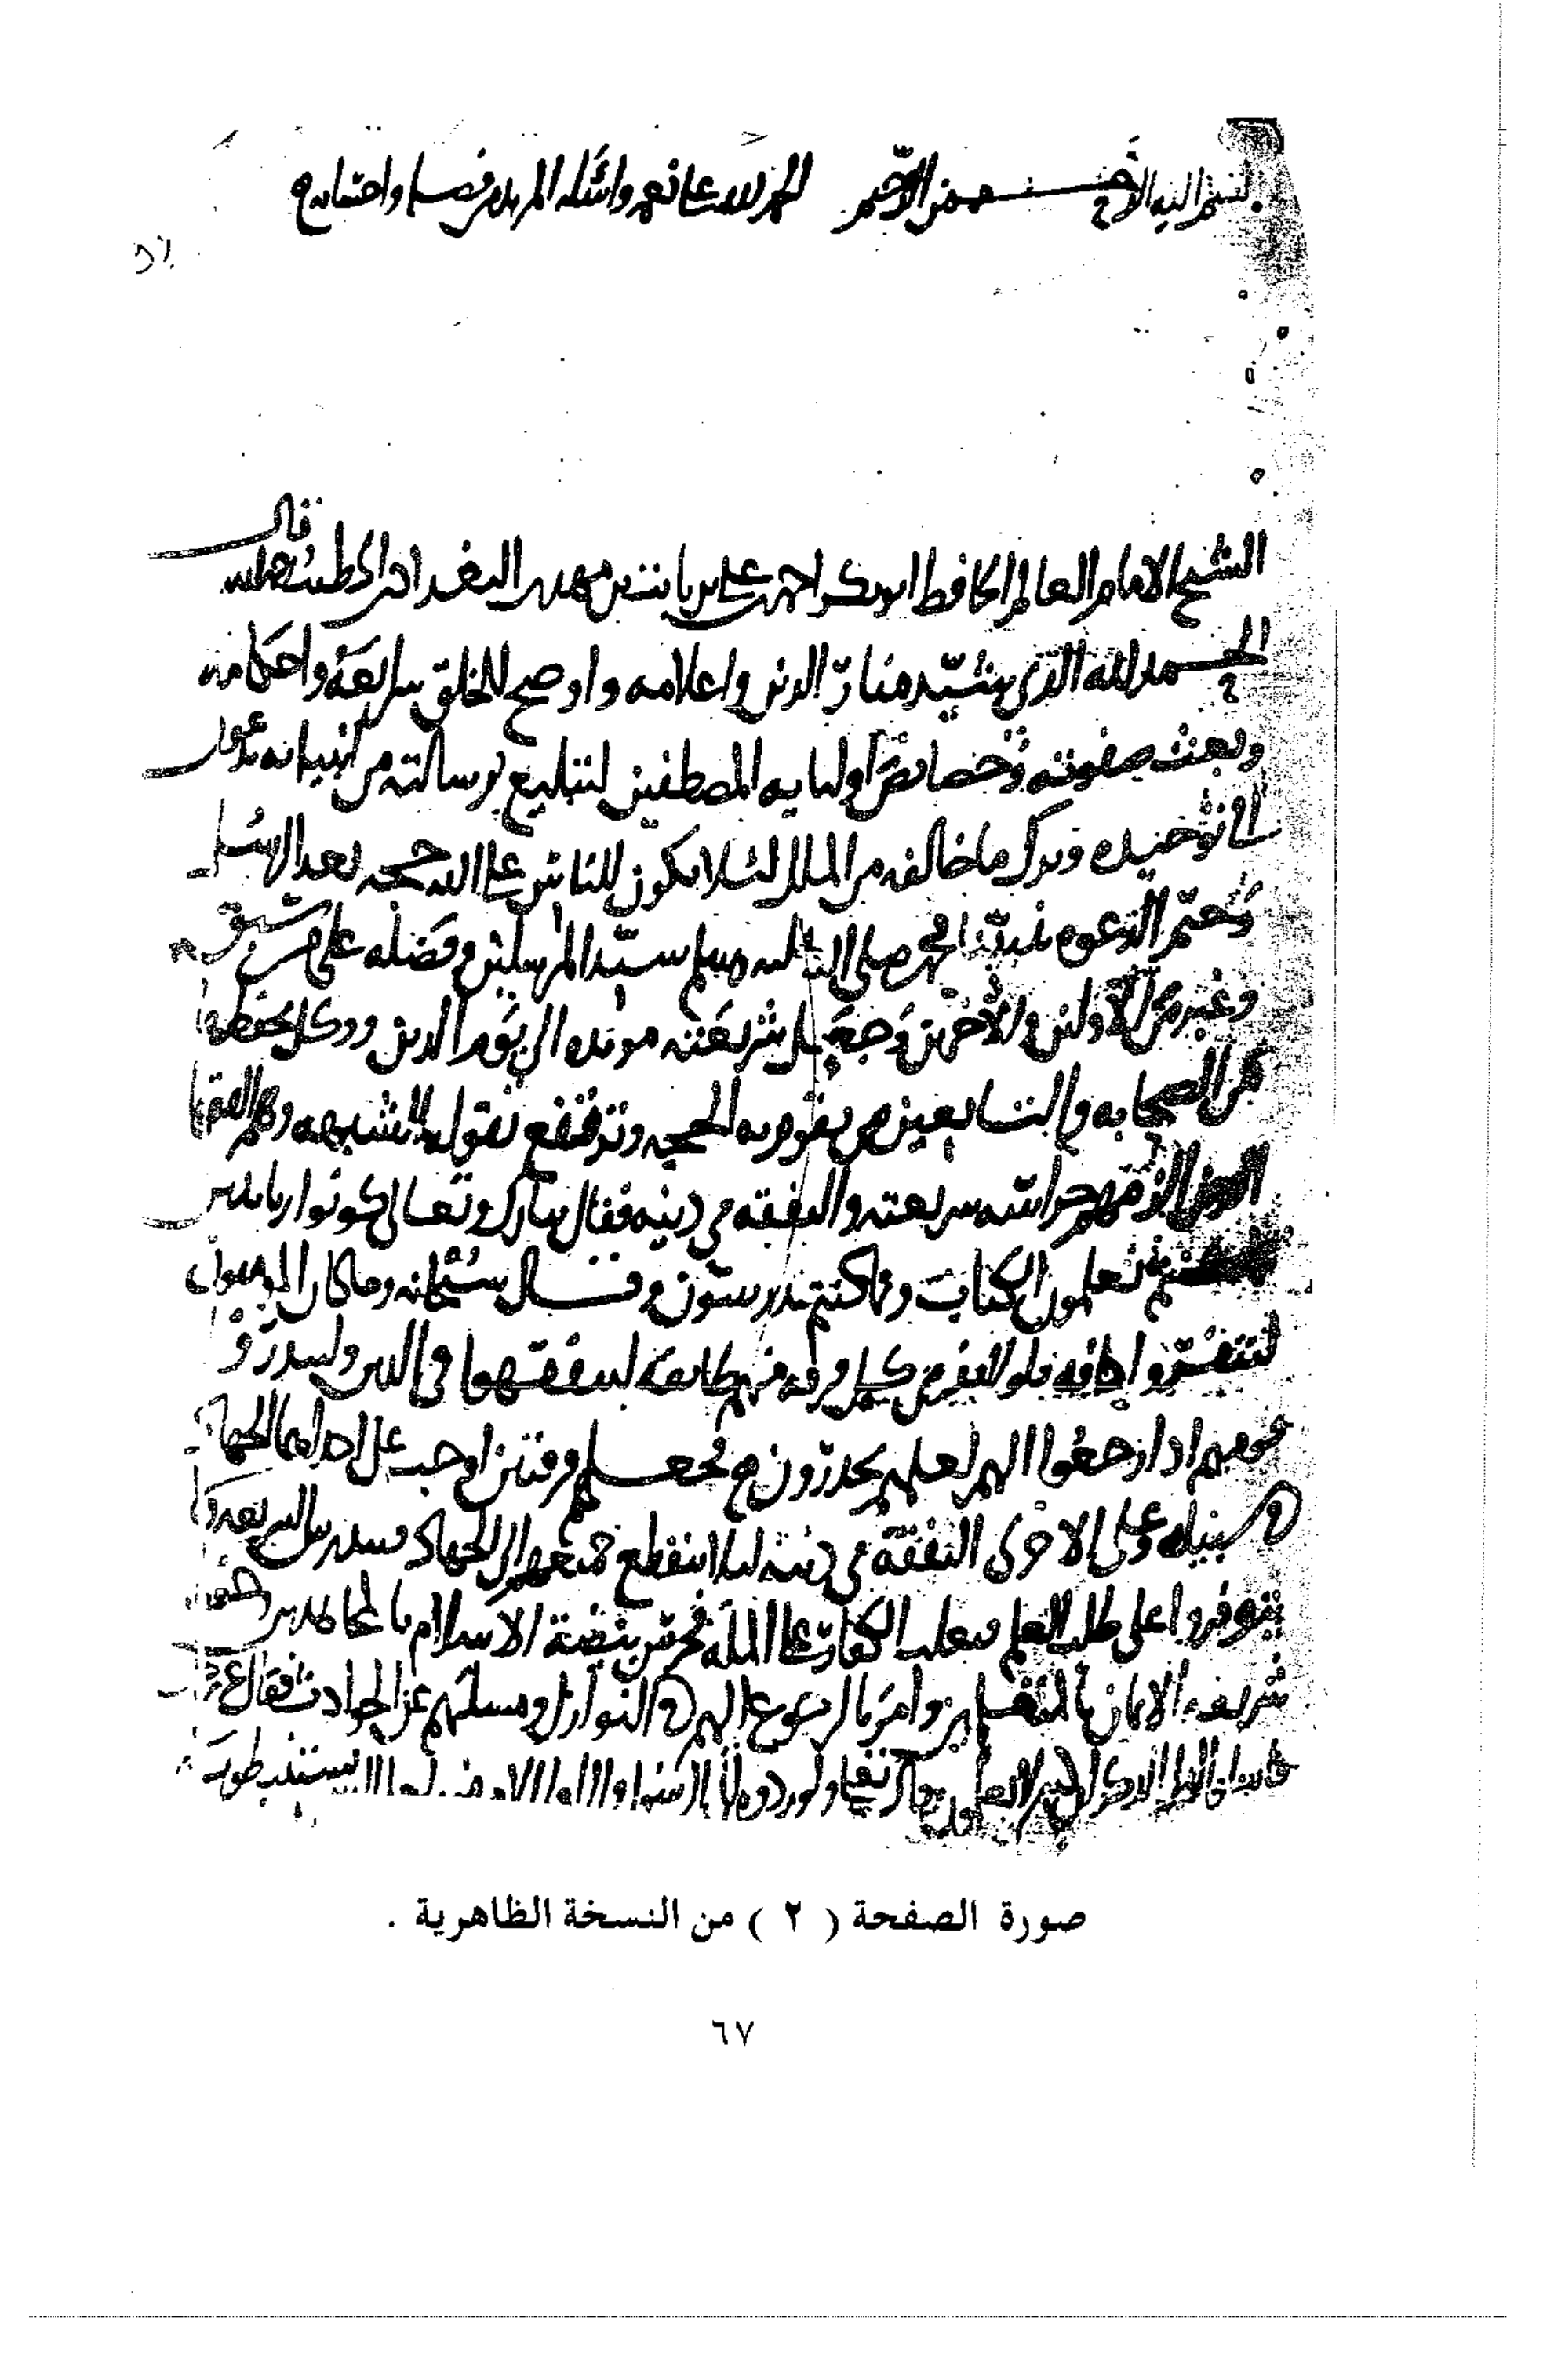 بسم الله الرحمن الرحيم الحمد لله على نعمه واسله المزيد من فضله
قال
الشيخ الامام العالم الحافظ ابو بكر احمد بن على بن ثابت بن مهدى البغدادى الخطيب رحمه الله
الحمد لله الذى شيد منار الدين واعلامه واوضح للخلق شرايعه واحكامه
وبعث صفوته وخصائص اوليايه المصطفين لتبليغ رسالته من انبيائه يدعون
الى توحيده وترك ما خالفه من الملل لئلا يكون للناس على الله حجه بعد الرسل
وختم الدعوه بنبينا محمد صلى الله عليه وسلم سيد المرسلين وفضله على من سبق
وغبر من الاولين والاخرين وجعل شريعته مويده الى يوم الدين ووكل بحفظها
من الصحابه والتابعين من يقوم به الحجه وترتفع بقوله الشبهه وهم الفقها
الذين الزمهم حراسه شريعته والتفقه فى دينه فقال تبارك وتعالى كونوا ربانيين
بما كنتم تعلمون الكتاب وبما كنتم تدرسون وقال سبحانه وما كان المومنون
لينفروا كافه فلولا نفر من كل فرقه منهم طايفه ليتفقهوا فى الدين ولينذروا
قومهم اذا رجعوا اليهم لعلهم يحذرون فجعلهم فرقتين اوجب على احداهما الجهاد
فى سبيله وعلى الاخرى التفقه فى دينه ليلا ينقطع جميعهم الى الجهاد فتندرس الشريعه ولا
يتوفروا على طلب العلم فتغلب الكفار على المله فحرس بيضة الاسلام بالمجاهدين وحفظ
شريعه الايمان بالمتعلمين وامر بالرجوع اليهم فى النوازل ومسلتهم عن الحوادث فقال عز وجل
فاسلوا اهل الذكر ان كنتم لا تعلمون وقال تعالى ولو ردوه الى الرسول والى اولى الامر منهم لعلمه الذين يستنبطونه
صورة الصفحة ( ٢ ) من النسخة الظاهرية .
٦٧